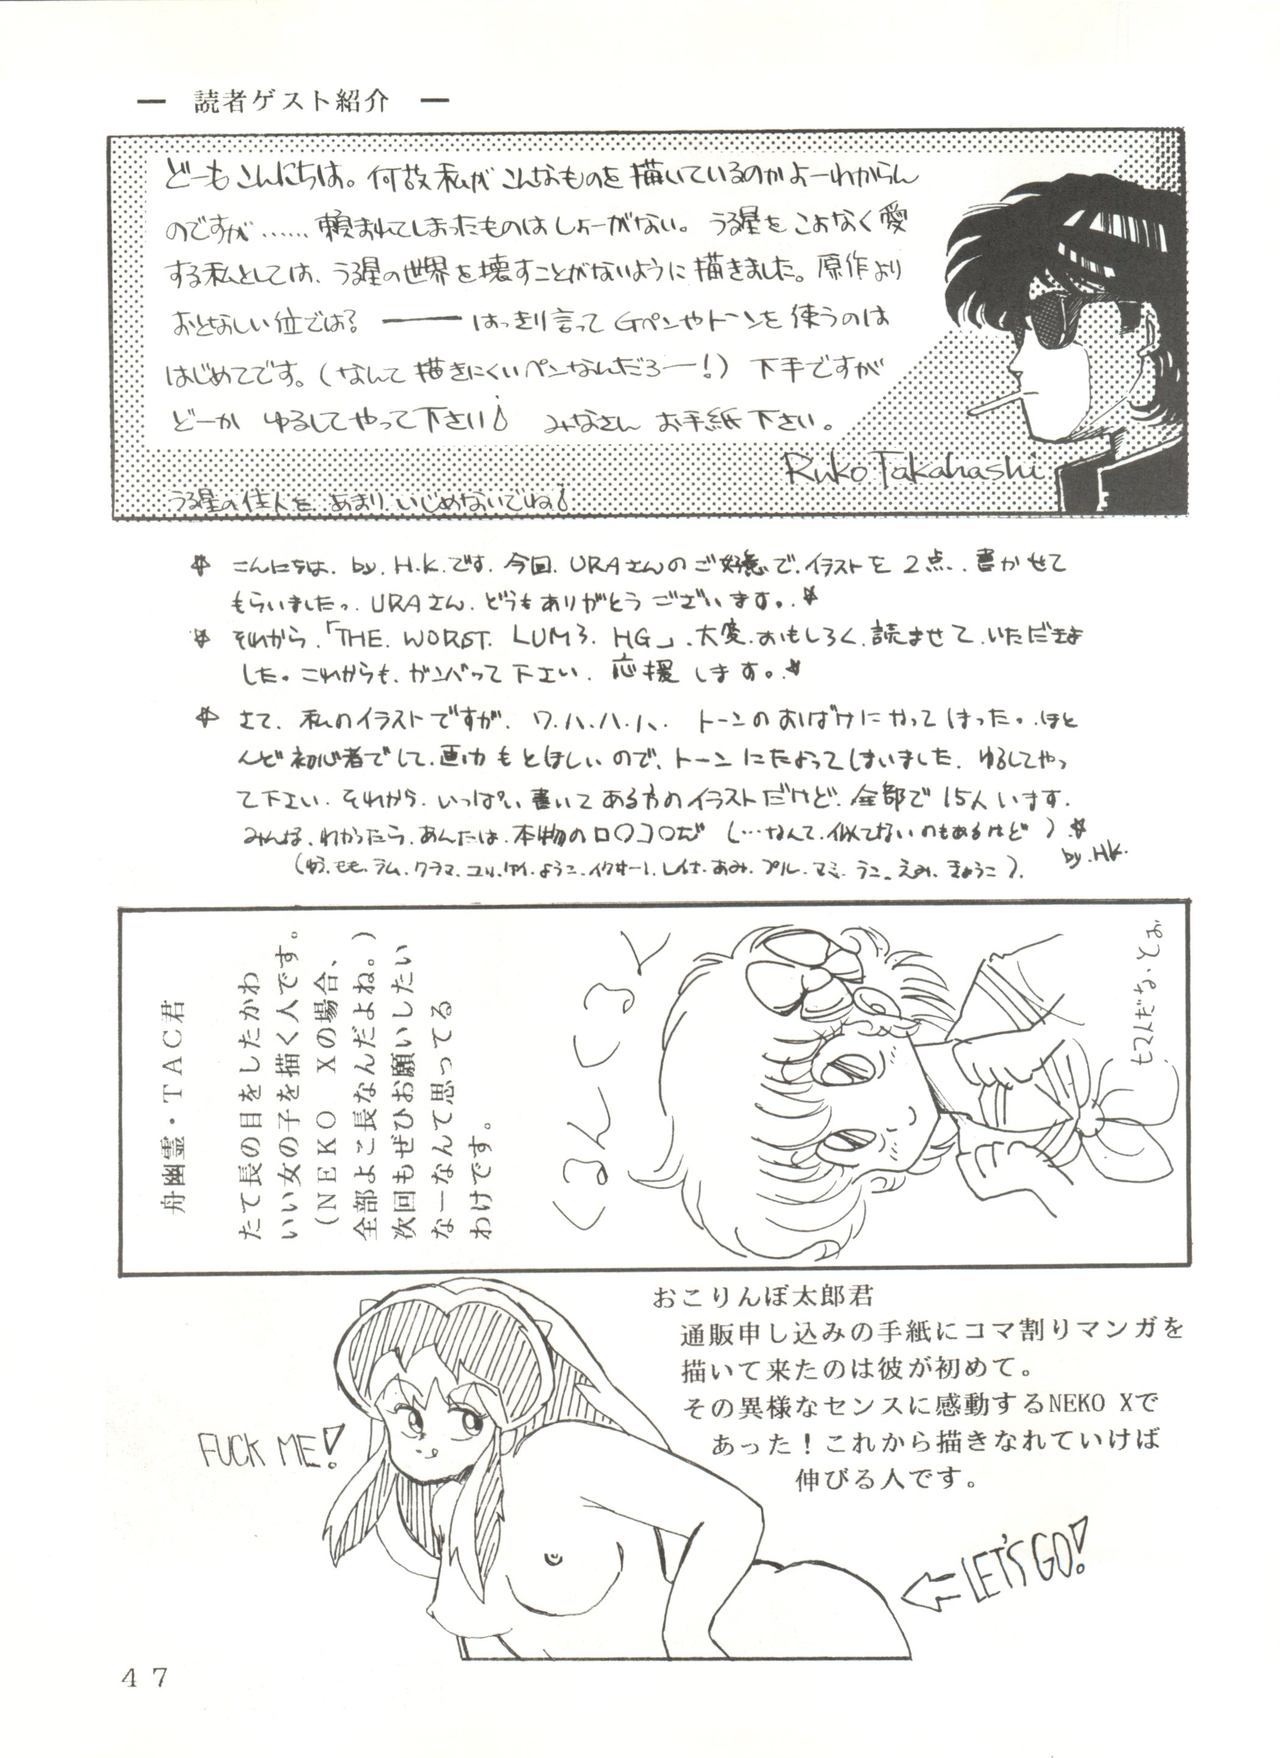 ― 読者ゲスト紹介 ―
どーもこんにちは。何故私がこんなものを描いているのかよーわからん
のですが……頼まれてしまったものはしょーがない。うる星をこよなく愛
する私としては、うる星の世界を壊すことがないように描きました。原作より
おとなしい位では？――はっきり言ってGペンやトーンを使うのは
はじめてです。(なんて描きにくいペンなんだろー!) 下手ですが
どーか ゆるしてやって下さい! みなさん お手紙下さい。
Ruko Takahashi
うる星の住人を あまり いじめないでね!
☆ こんにちは、by, H.K.です。今回、URAさんのご好意で、イラストを2点、書かせて
もらいましたっ、URAさん、どうもありがとうございます。☆
☆ それから、「THE WORST LUM3. HG」、大変、おもしろく、読ませて、いただきま
した。これからも、ガンバって下さい、応援します。☆
☆ さて、私のイラストですが、ワ、ハ、ハ、ハ、トーンのおばけにやってしまった。ほと
んど初心者でして、画力もとぼしいので、トーンにたよってしまいました、ゆるしてやっ
て下さい、それから、いっぱい書いてある方のイラストだけど、全部で15人います。
みんな、わかったら、あんたは、本物のロ○コ○だ (…なんて、似てないのもあるけど)☆
by, HK.
(ゆう、モモ、ラム、クラマ、ユリ、ケイ、ようこ、イクサー1、レイナ、あみ、プル、マミ、うこ、えみ、きょうこ)
舟幽霊・TAC君
たて長の目をしたかわ
いい女の子を描く人です。
(NEKO Xの場合、
全部よこ長なんだよね。)
次回もぜひお願いしたい
なーなんて思ってる
わけです。
くるんくるん
ヒマんだな・とお
おこりんぼ太郎君
通販申し込みの手紙にコマ割りマンガを
描いて来たのは彼が初めて。
その異様なセンスに感動するNEKO Xで
あった!これから描きなれていけば
伸びる人です。
FUCK ME!
LET'S GO!
47